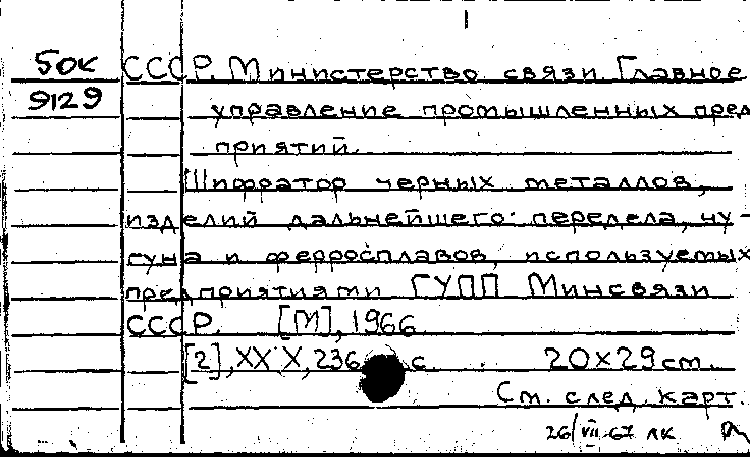 1
50к СССР. Министерство связи. Главное
9129 управление промышленных пред
приятий.
Шифратор черных металлов,
изделий дальнейшего передела, чу-
гуна и ферросплавов, используемых
предприятиями ГУПП Минсвязи
СССР. [М], 1966.
[2], XXX, 236 с. 20х29 см.
См. след. карт.
26/VII-67 лк